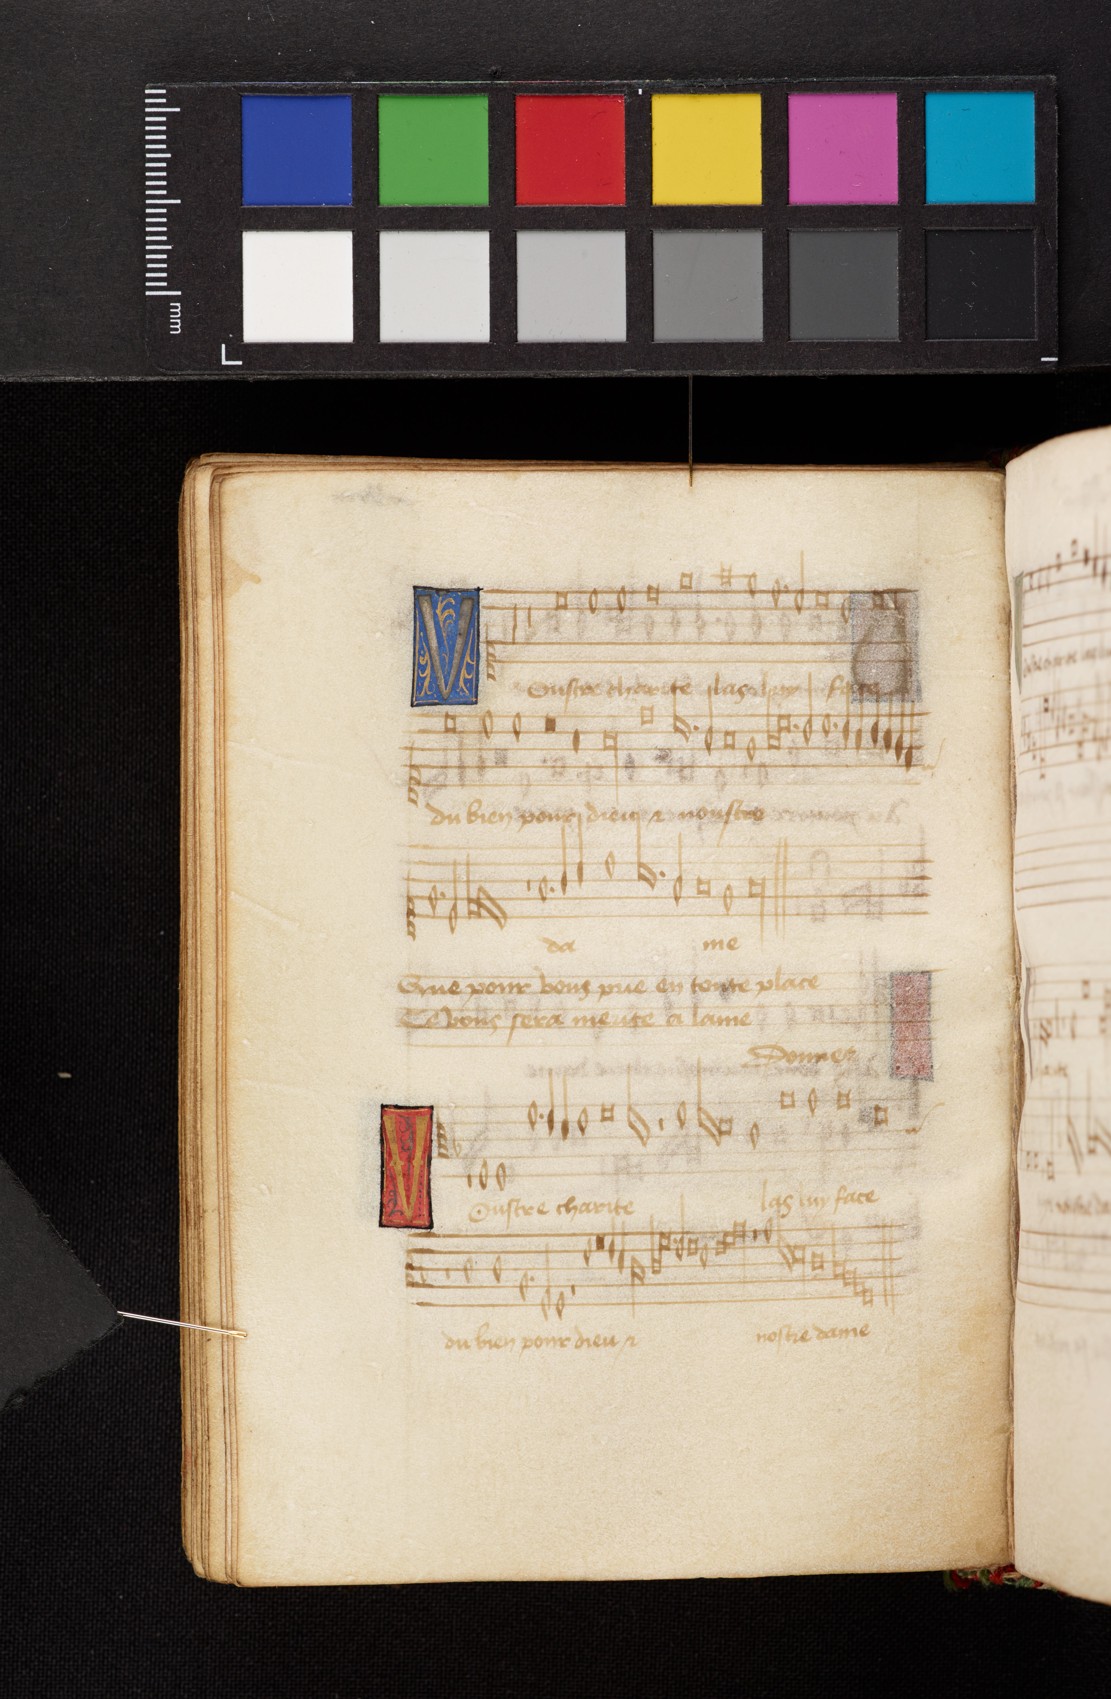 mm
Voustre charite las luy face
du bien pour dieu & noustre
da me
Que pour vous prie en toute place
Et vous sera merite a lame
Donnez
Voustre charite las luy face
du bien pour dieu & nostre dame